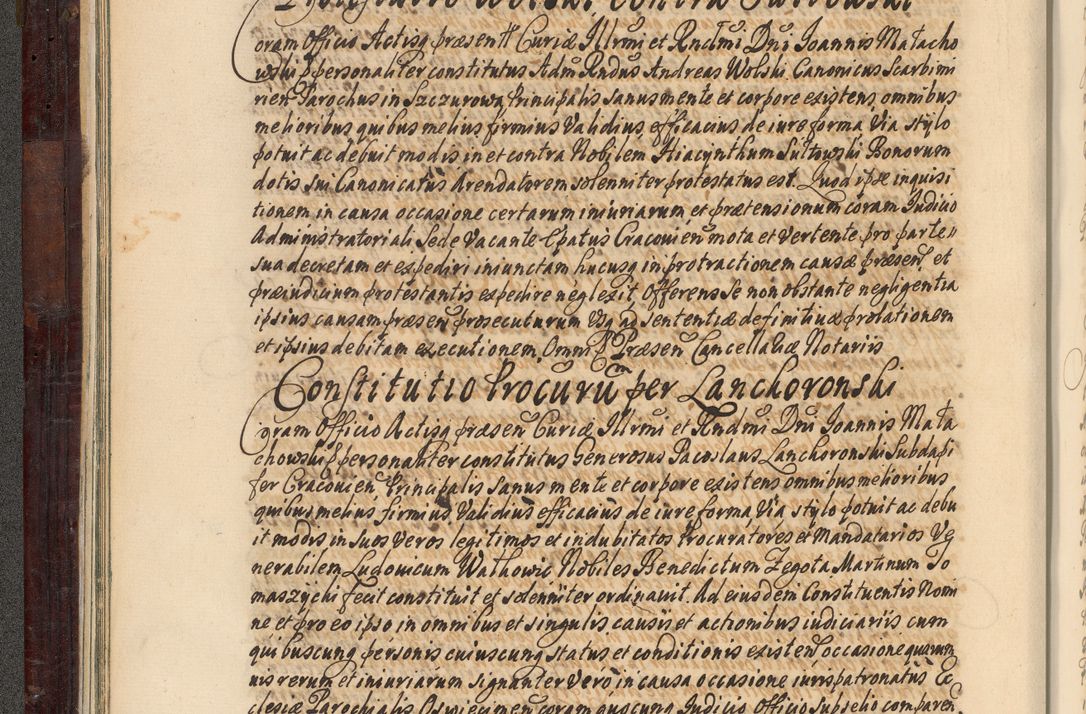 Protestatio Wolski contra Sułtowski
Coram Officio Actisq præsentt Curiæ Illrmi et Rndmi Dni Joannis Małacho
wski p personaliter constitutus Adm Rndus Andreas Wolski Canonicus Scarbimi
rien Parochus in Szczurowa Principalis sanus mente et corpore existens omnibus
melioribus quibus melius firmius validius efficacius de iure forma via stylo
potuit ac debuit modis in et contra Nobilem Hiacynthum Sułtowski Bonorum
dotis sui Canonicatus Arendatorem solenniter protestatus est. Quod ipse inquisi
tionem in causa occasione certarum iniuriarum et prætensionum coram Judicio
Administratoriali Sede Vacante Epatus Cracovien mota et vertente pro parte
sua decretam et expediri iniunctam hucusq in protractionem causæ præsen et
præiudicium protestantis expedire neglexit. Offerens se non obstante negligentia
ipsius causam præsen prosecuturum usq ad sententiæ definitiuæ prolationem
et ipsius debitam executionem. Omni Præsen Cancellariæ Notariis
Constitutio Procurū per Lanchoronski
Coram Officio Actisq præsen Curiæ Illrmi et Rndmi Dni Joannis Mała
chowski p personaliter constitutus Generosus Jacoslaus Lanchoronski Subdapi
fer Cracovien, Principalis sanus mente et corpore existens omnibus melioribus
quibus melius firmius validius efficacius de iure forma via stylo potuit ac debu
it modis in suos veros legitimos et indubitatos Procuratores et Mandatarios Ve
nerabilem Ludovicum Wathowic Nobiles Benedictum Zegota Martinum To
maszychi fecit constituit et solenniter ordinauit. Ad eiusdem Constituentis Nomi
ne et pro eo ipso in omnibus et singulis causis et actionibus iudiciariis cum
quibuscunq personis cuiuscunq status et conditionis existen occasione quarum
uis rerum et iniuriarum signanter vero in causa occasione iurispatronatus Ec
clesiæ Parochialis Osviecimen coram quocunq Judicio Officio subselio comparen